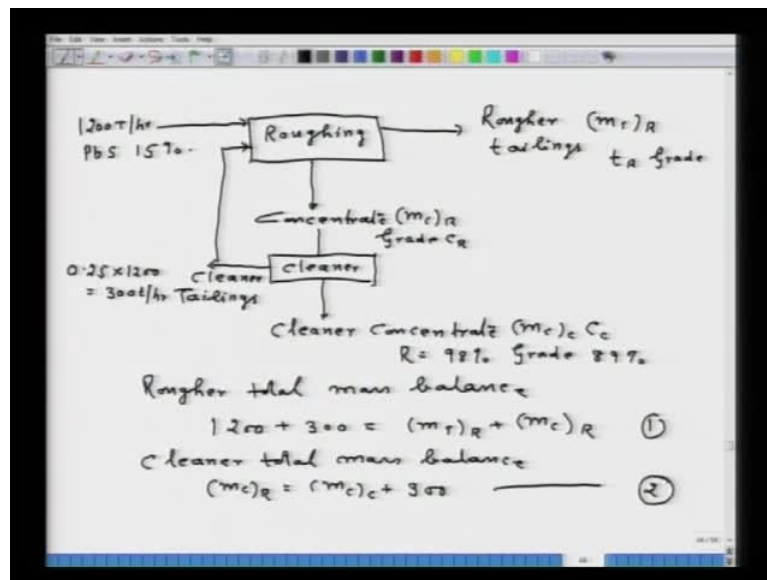 File Edit View Insert Actions Tools Help
1200T/hr
PbS 15%.
Roughing
Rougher (m_T)_R
tailings t_R Grade
Concentrate (m_c)_R
Grade C_R
0.25×1200
= 300t/hr
Cleaner
Tailings
Cleaner
Cleaner Concentrate (m_c)_c C_c
R = 98% Grade 89%
Rougher total mass balance
1200 + 300 = (m_T)_R + (m_c)_R ①
Cleaner total mass balance
(m_c)_R = (m_c)_c + 300 ②